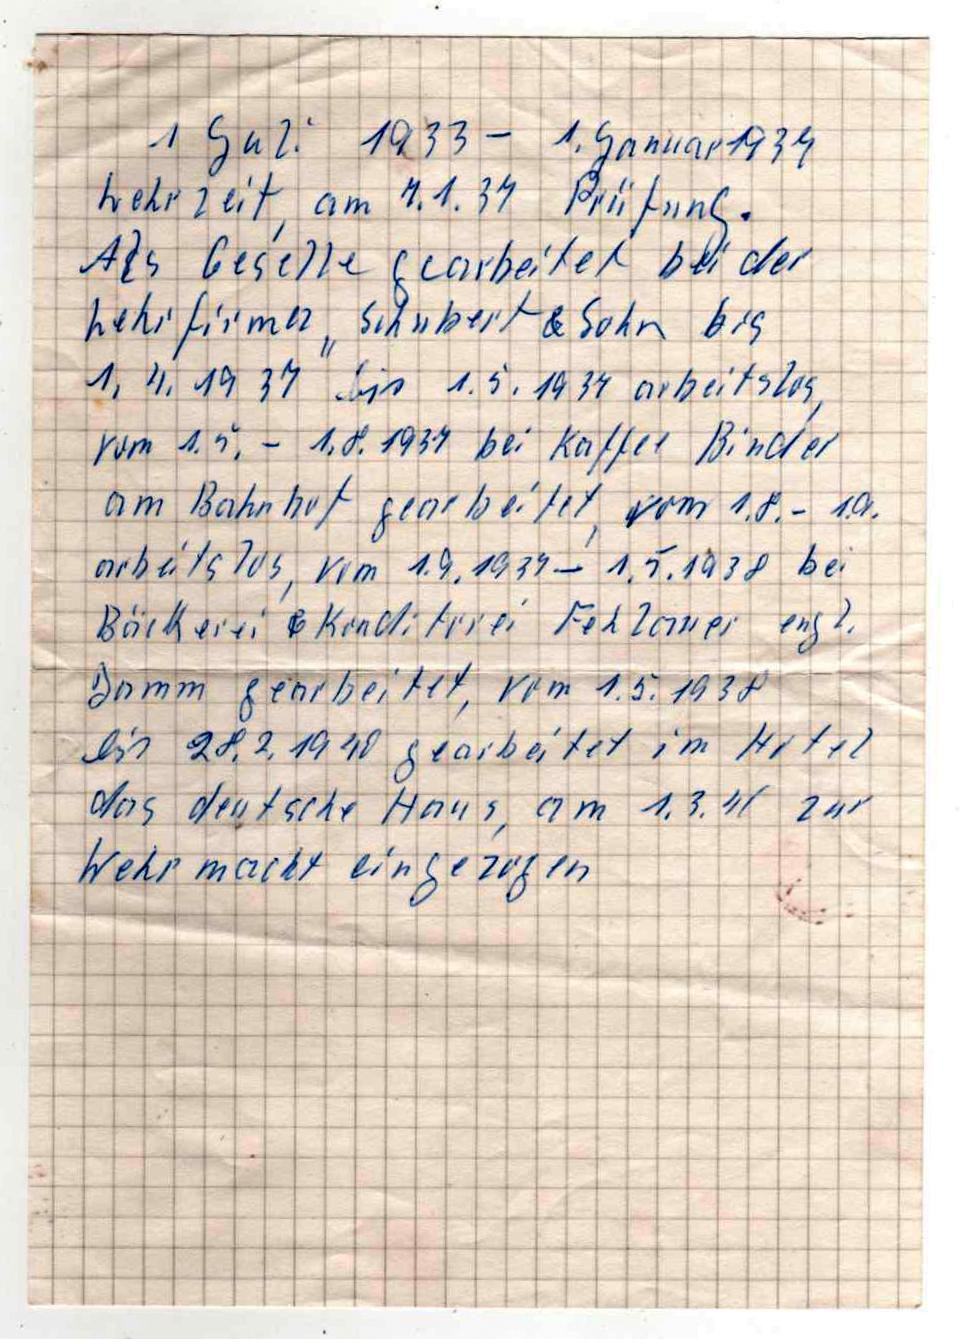 1 Juli 1933 – 1. Januar 1937
Lehrzeit, am 7.1.37 Prüfung.
Als Geselle gearbeitet bei der
Lehrfirma „Schubert & Sohn bis
1. 4. 1937 bis 1.5.1937 arbeitslos,
vom 1.5. – 1.8.1937 bei Kaffee Binder
am Bahnhof gearbeitet, vom 1.8. – 1.9.
arbeitslos, vom 1.9.1937 – 1.5.1938 bei
Bäckerei & Konditorei Fehlauer engl.
Damm gearbeitet, vom 1.5.1938
bis 28.2.1940 gearbeitet im Hotel
das deutsche Haus, am 1.3.41 zur
Wehrmacht eingezogen